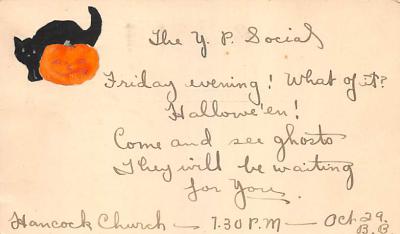 The Y. P. Social
Friday evening! What of it?
Hallowe'en!
Come and see ghosts
They will be waiting
for You.
Hancock Church — 7.30 P.M — Oct 29.
B.B